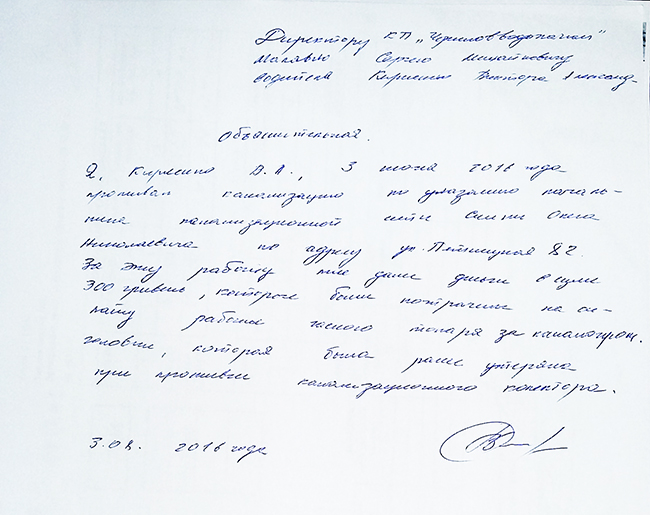 Директору КП "Черниговводоканал"
Малявко Сергею Михайловичу
водителя Кириенко Виктора
Объяснительная.
Я, Кириенко В.А., 3 июня 2016 года
промывал канализацию по указанию началь-
ника канализационной сети Олега
Николаевича по адресу ул. Пятницкая 82.
За эту работу мне дали деньги в суме
300 гривень, которые были потрачены на оп-
лату работы токаря за
головки, которая была ранее утеряна
при промывке канализационного колектора.
3.08. 2016 года